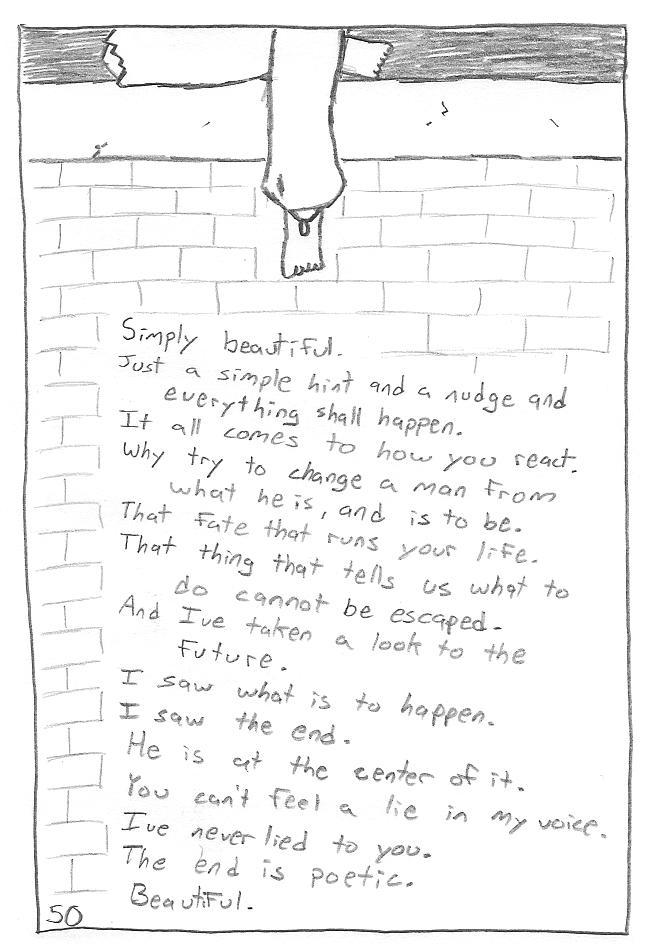 Simply beautiful.
Just a simple hint and a nudge and
everything shall happen.
It all comes to how you react.
Why try to change a man from
what he is, and is to be.
That fate that runs your life.
That thing that tells us what to
do cannot be escaped.
And I've taken a look to the
future.
I saw what is to happen.
I saw the end.
He is at the center of it.
You can't feel a lie in my voice.
I've never lied to you.
The end is poetic.
Beautiful.
50